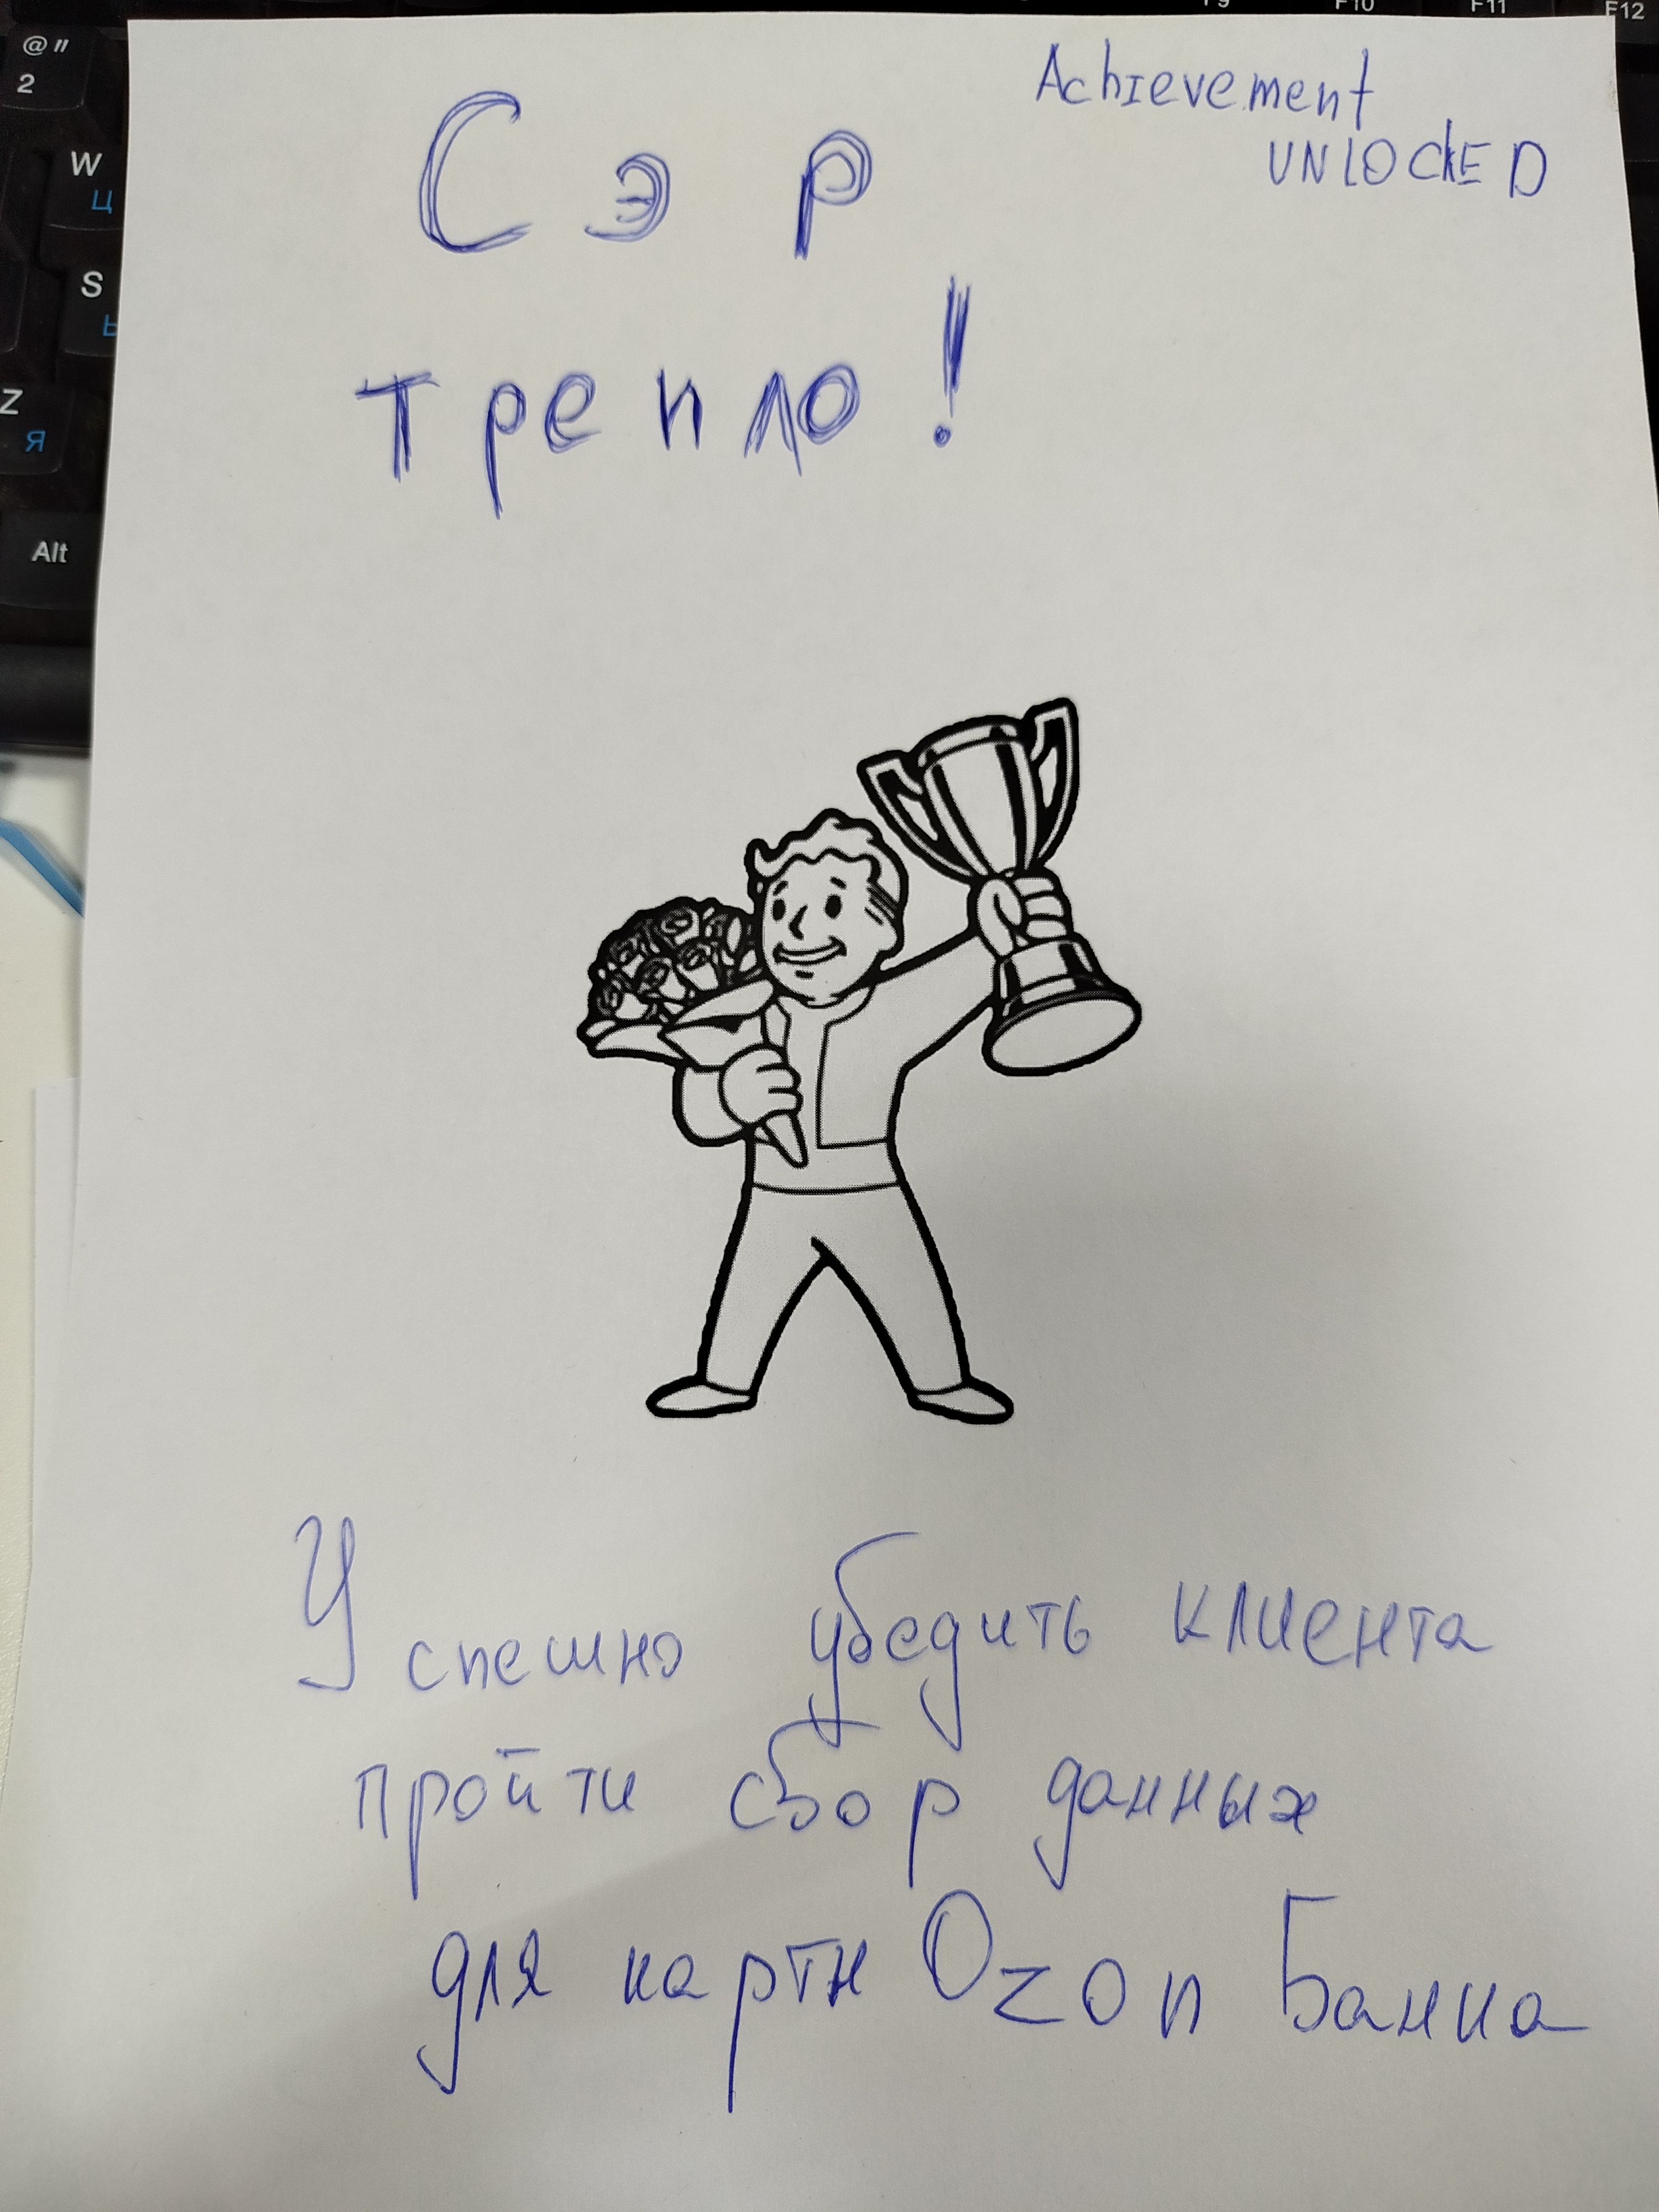 F9 F10 F11 F12
@ "
2
W
Ц
S
Z
Я
Alt
Achievement
UNLOCkED
Сэр
трепло!
Успешно убедить клиента
пройти сбор данных
для карты Ozon Банка